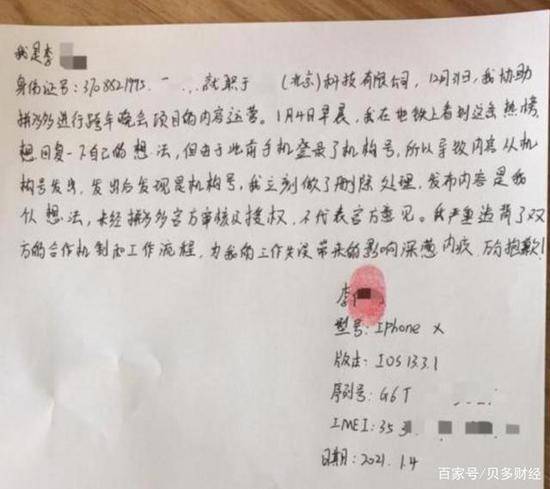 我是李
身份证号：3708521995.　　就职于　　(北京)科技有限公司，12月31日，我协助
拼多多进行跨年晚会项目的内容运营。1月4日早晨，我在地铁上看到这条热榜，
想回复一下自己的想法，但由于此前手机登录了机构号，所以导致内容从机
构号发出，发出后发现是机构号，我立刻做了删除处理，发布内容是我
个人想法，未经拼多多官方审核及授权，不代表官方意见。我严重违背了双
方的合作机制和工作流程，为我的工作失误带来的影响深感内疚，万分抱歉！
李
型号：Iphone X
版本：IOS 13.3.1
序列号：G6T
IMEI：353
日期：2021.1.4
百家号/贝多财经